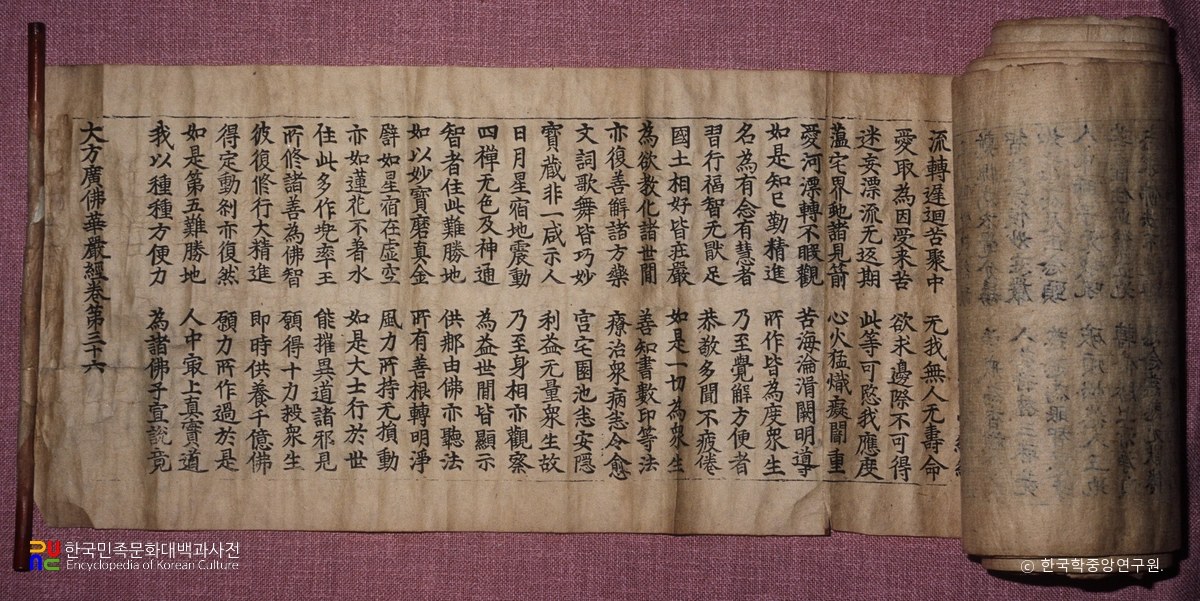 流轉遲迴苦聚中 无我無人无壽命
愛取為因受来苦 欲求邊際不可得
迷妄漂流无返期 此等可愍我應度
薀宅界虵諸見箭 心火猛熾癡闇重
愛河漂轉不暇觀 苦海淪湑闕明導
如是知已勤精進 所作皆為度衆生
名為有念有慧者 乃至覺解方便者
習行福智无猒足 恭敬多聞不疲倦
國土相好皆莊嚴 如是一切為衆生
為欲教化諸世間 善知書數印等法
亦復善解諸方藥 療治衆病悉令愈
文詞歌舞皆巧妙 宮宅園池悉安隱
寶蔵非一咸示人 利益无量衆生故
日月星宿地震動 乃至身相亦觀察
四禪无色及神通 為益世間皆顯示
智者住此難勝地 供那由佛亦聽法
如以妙寶磨真金 所有善根轉明淨
譬如星宿在虛空 風力所持无損動
亦如蓮花不著水 如是大士行於世
住此多作兜率王 能摧異道諸邪見
所修諸善為佛智 願得十力救衆生
彼復修行大精進 即時供養千億佛
得定動剎亦復然 願力所作過於是
如是第五難勝地 人中㝡上真實道
我以種種方便力 為諸佛子宣說竟
大方廣佛華嚴經卷第三十六
한국민족문화대백과사전
Encyclopedia of Korean Culture
ⓒ 한국학중앙연구원.